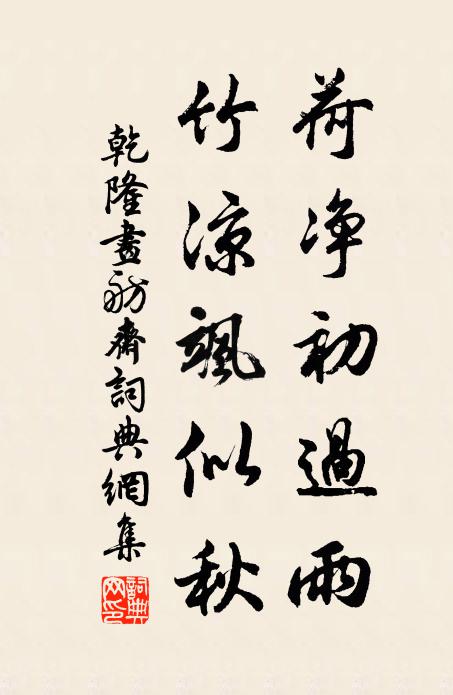 荷净初過雨
竹涼颯似秋
乾隆畫舫齋詞典網集
詞典网印